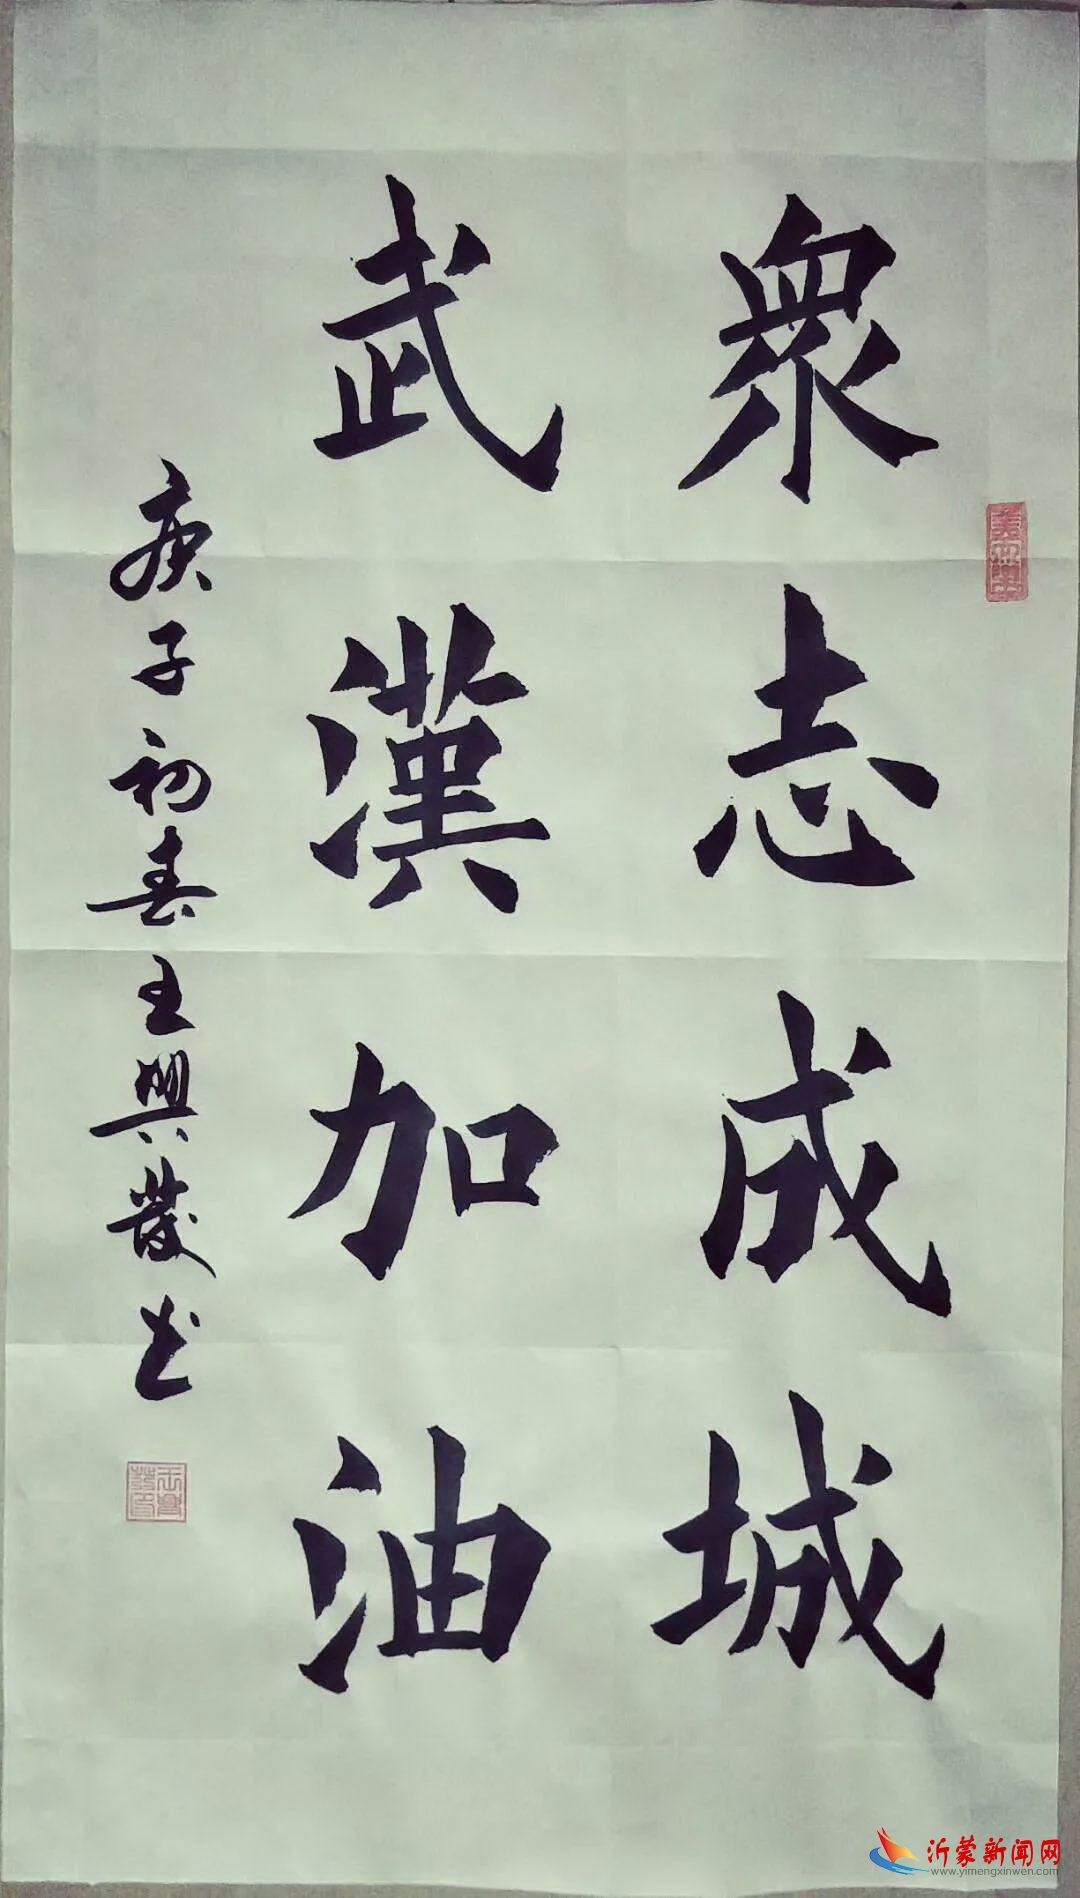 衆志成城
武漢加油
庚子初春王興發書
沂蒙新闻网
www.yimengxinwen.com